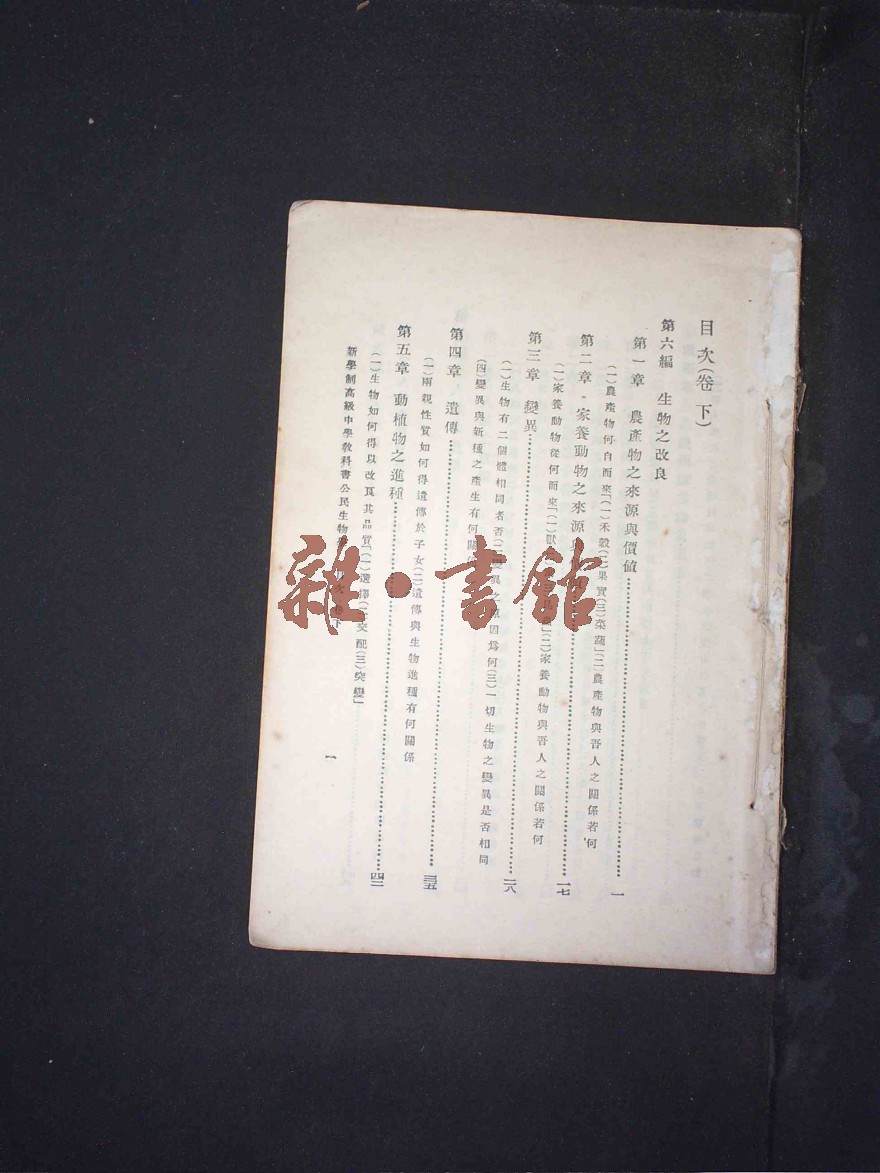 目次(卷下)
第六編 生物之改良
第一章 農產物之來源與價值 一
(一)農產物何自而來「(一)禾穀(二)果實(三)菜蔬」(二)農產物與吾人之關係若何
第二章 家養動物之來源與 一七
(一)家養動物從何而來「(一)獸 」(二)家養動物與吾人之關係若何
第三章 變異 二八
(一)生物有二個體相同者否(二)變異之原因爲何(三)一切生物之變異是否相同
(四)變異與新種之產生有何關係
第四章 遺傳 三五
(一)兩親性質如何得遺傳於子女(二)遺傳與生物進種有何關係
第五章 動植物之進種 四二
(一)生物如何得以改良其品質「(一)選擇(二)交配(三)突變」
新學制高級中學教科書公民生物學 目次 卷下
一
雜·書館